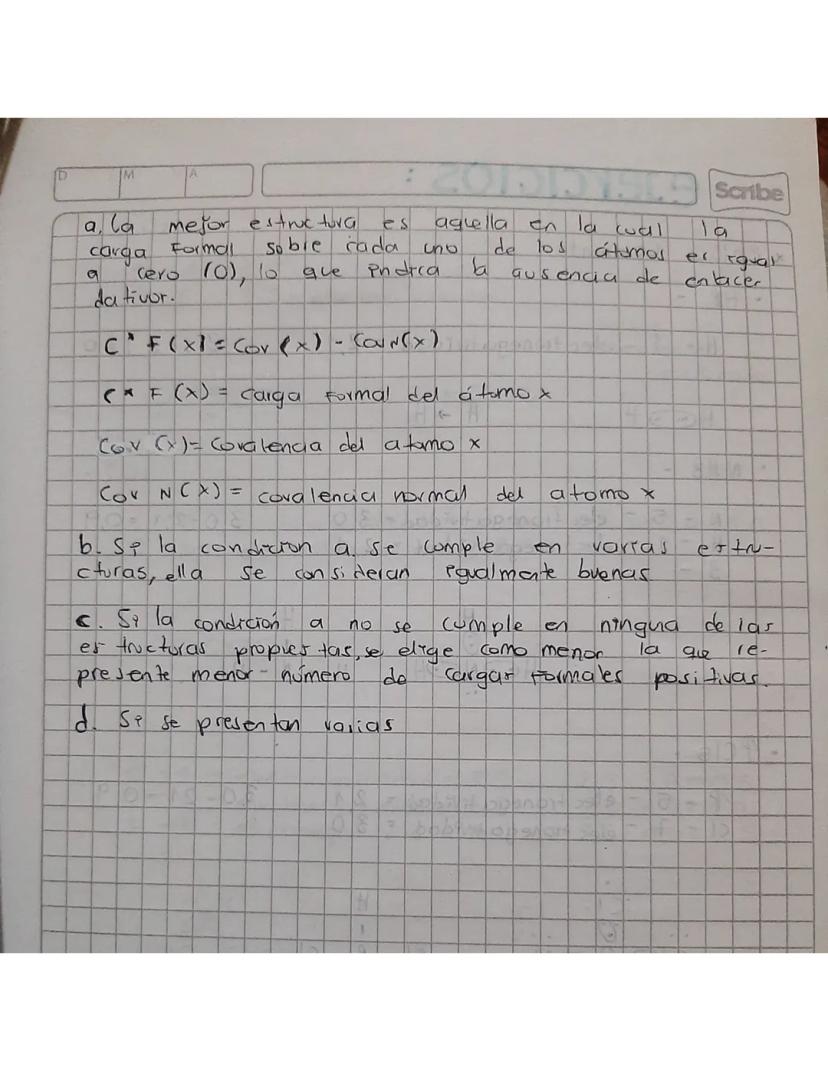 D M A
Scribe
a. la mejor estructura es aquella en la cual la
carga formal sobre cada uno de los átomos es igual
a cero (0), lo que indica la ausencia de enlaces
dativos.
C* F(x) = Cov (x) - CovN(x)
C* F (x) = carga formal del átomo x
Cov (x) = covalencia del atomo x
Cov N(x) = covalencia normal del atomo x
b. Si la condicion a. se cumple en varias estru-
cturas, ella se consideran igualmente buenas
c. Si la condición a no se cumple en ninguna de las
estructuras propuestas, se elige como menor la que re-
presente menor número de cargas formales positivas.
d. Si se presentan varias